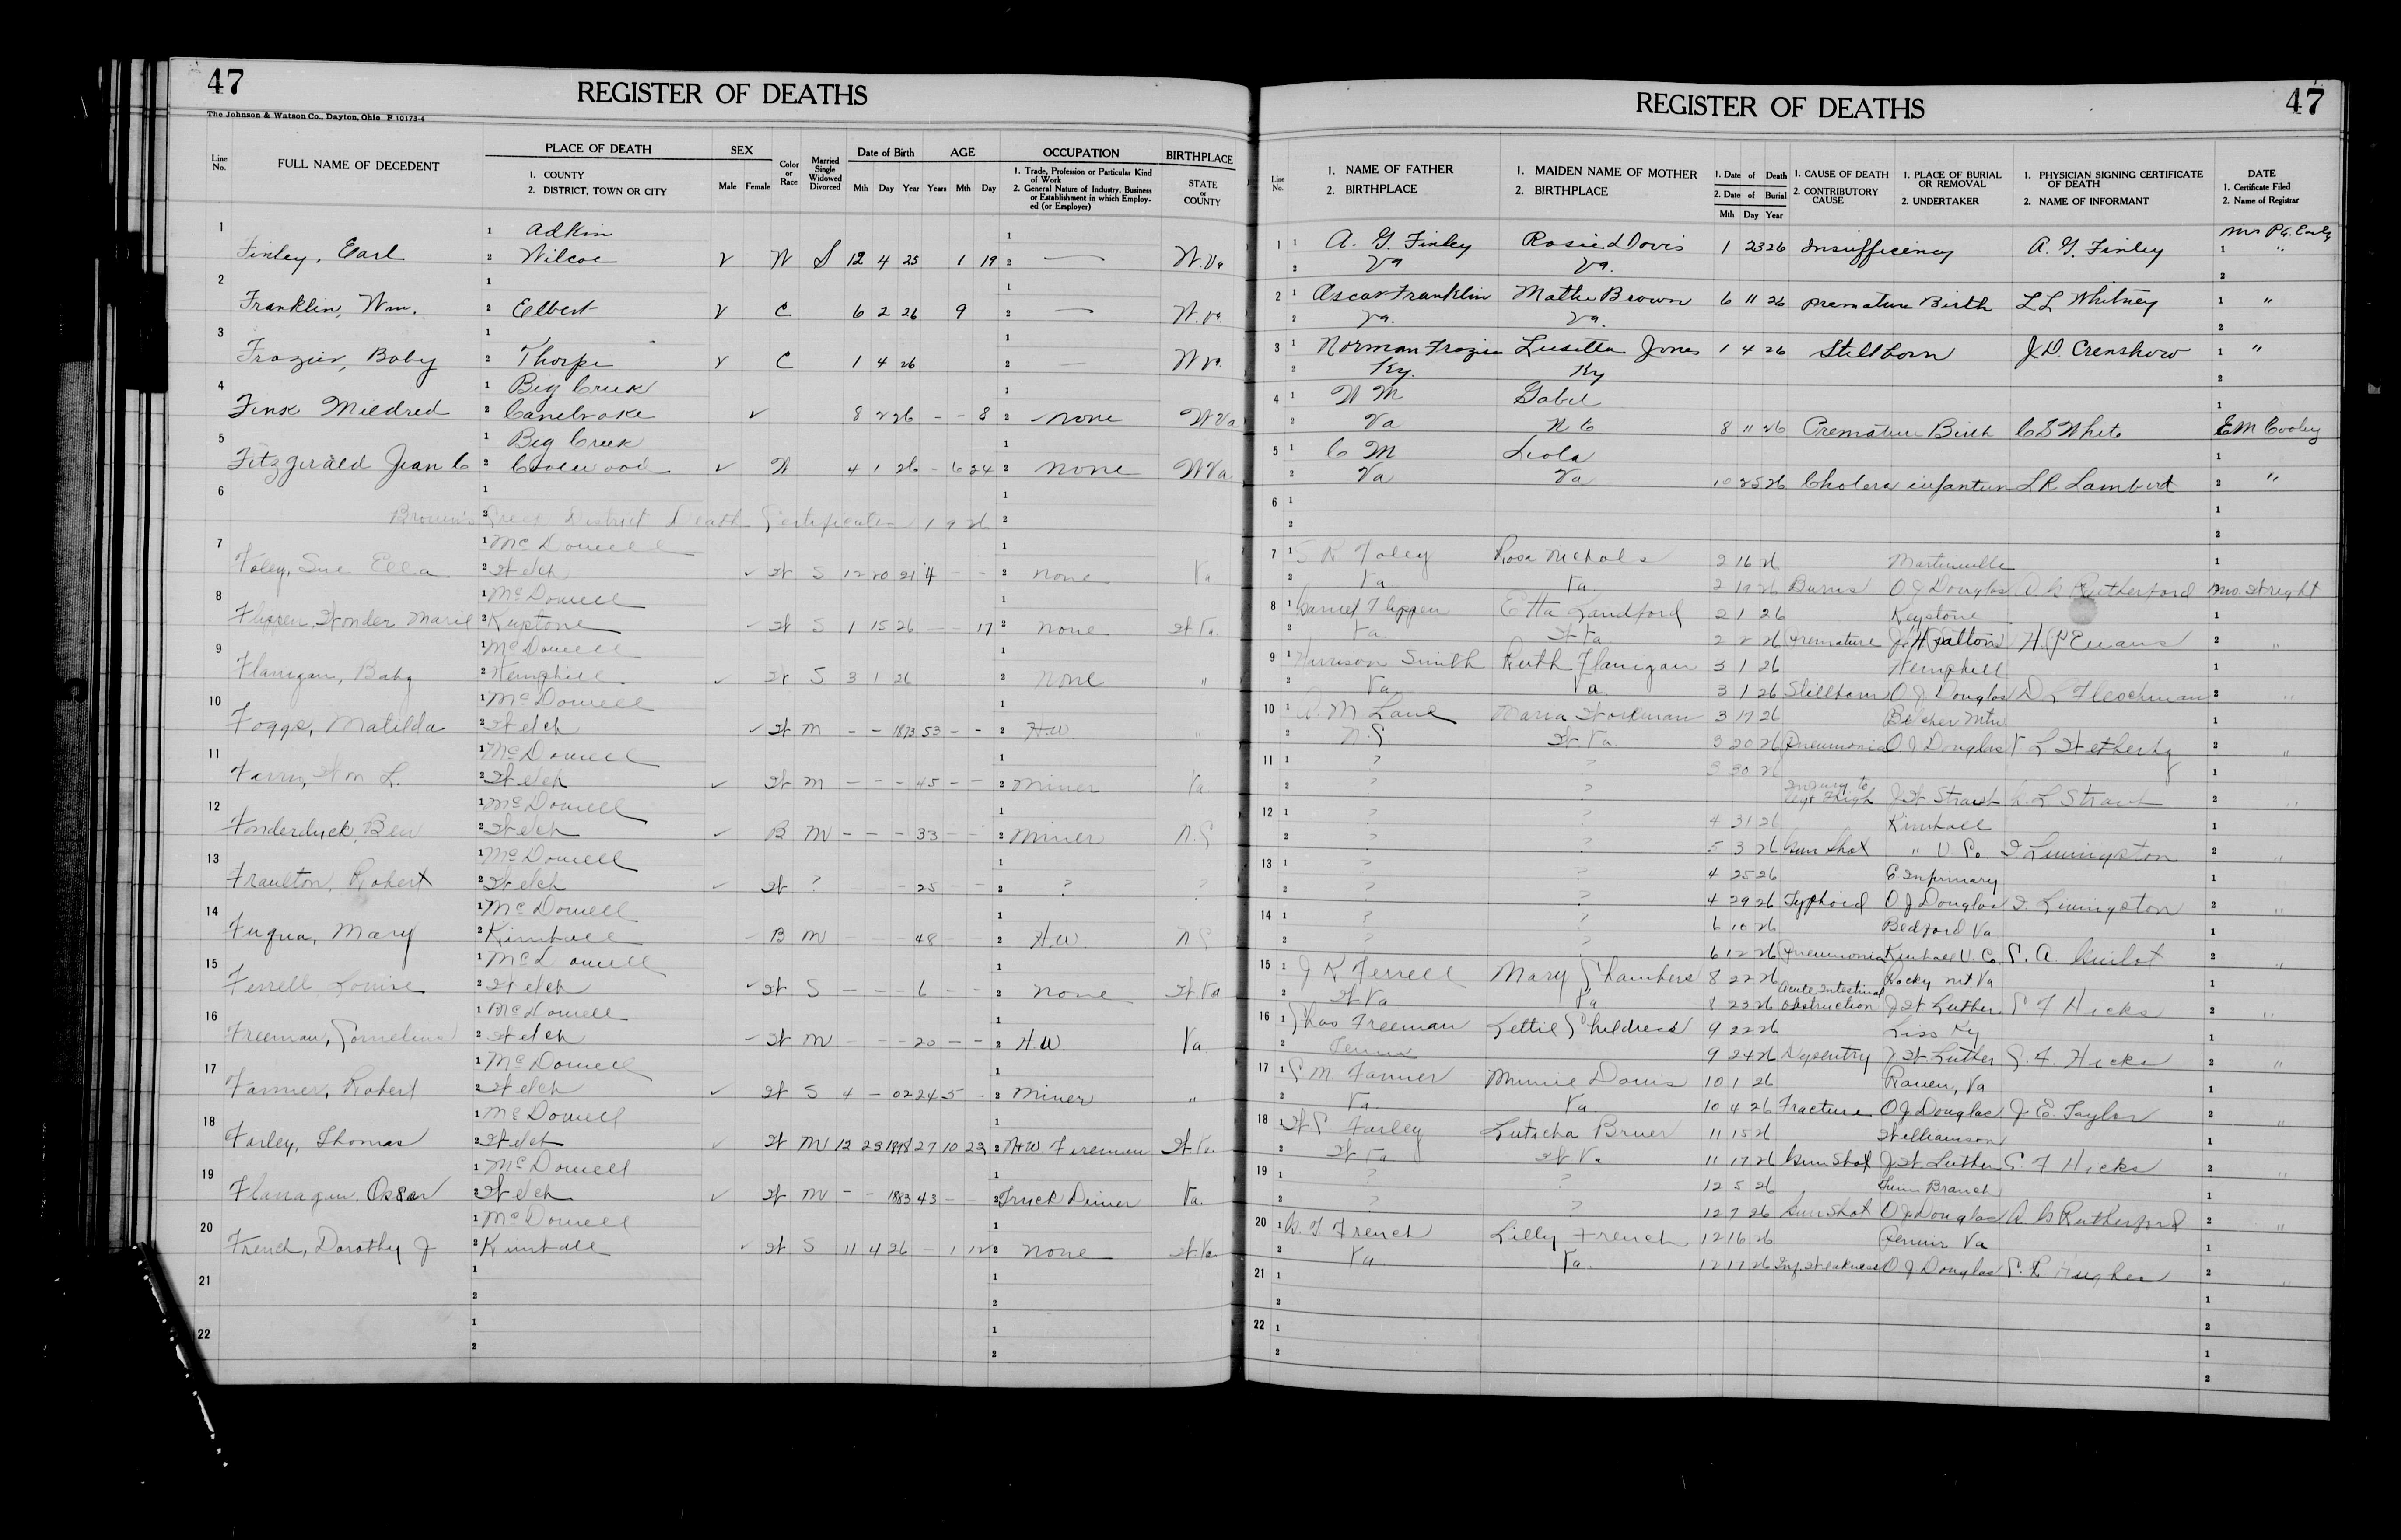 47
REGISTER OF DEATHS
The Johnson & Watson Co., Dayton, Ohio F 10173-4
Line No. FULL NAME OF DECEDENT PLACE OF DEATH 1. COUNTY 2. DISTRICT, TOWN OR CITY SEX Male Female Color or Race Married Single Widowed Divorced Date of Birth Mth Day Year AGE Years Mth Day OCCUPATION 1. Trade, Profession or Particular Kind of Work 2. General Nature of Industry, Business or Establishment in which Employed (or Employer) BIRTHPLACE STATE or COUNTY
1 1 Adkin 1
Finley, Earl 2 Wilcoe ✓ W S 12 4 25 1 19 2 — W.Va
2 1 1
Franklin, Wm. 2 Elbert ✓ C 6 2 26 9 2 — W.Va.
3 1 1
Frazier, Baby 2 Thorpe ✓ C 1 4 26 2 — W Va
4 1 Big Creek 1
Fink Mildred 2 Canebrake ✓ 8 2 26 - - 8 2 none W Va
5 1 Big Creek 1
Fitzgerald Jean C 2 Coalwood ✓ W 4 1 26 - 6 24 2 none W Va
6 1 1
Brown's Creek District Death Certificates 1926 2
7 1 McDowell 1
Foley, Sue Ella 2 Welch ✓ W S 12 20 21 4 - - 2 none Va
8 1 McDowell 1
Flippen, Wonder Marie 2 Keystone ✓ W S 1 15 26 - - 17 2 none W.Va.
9 1 McDowell 1
Flanigan, Baby 2 Hemphill ✓ W S 3 1 26 2 none "
10 1 McDowell 1
Foggs, Matilda 2 Welch ✓ W M - - 1873 53 - - 2 H.W "
11 1 McDowell 1
2 Welch ✓ W M - - - 45 - - 2 Miner Va.
12 1 McDowell 1
Fonderdyck, Ben 2 Welch ✓ B M - - - 33 - - 2 Miner N.C
13 1 McDowell 1
Fraulton, Robert 2 Welch ✓ W ? - - - 25 - - 2 ? ?
14 1 McDowell 1
Fuqua, Mary 2 Kimball ✓ B M - - - 48 - - 2 H.W. N C
15 1 McDowell 1
Ferrell, Louise 2 Welch ✓ W S - - - 6 - - 2 none W.Va
16 1 McDowell 1
Freeman, Cornelius 2 Welch ✓ W M - - - 20 - - 2 H.W Va
17 1 McDowell 1
Farmer, Robert 2 Welch ✓ W S 4 - 02 24 5 - 2 Miner "
18 1 McDowell 1
Farley, Thomas 2 Welch ✓ W M 12 23 1898 27 10 23 2 N&W. Fireman W.Va.
19 1 McDowell 1
Flanagan, Oscar 2 Welch ✓ W M - - 1883 43 - - 2 Truck Driver Va.
20 1 McDowell 1
French, Dorothy J 2 Kimball ✓ W S 11 4 26 - 1 12 2 none W.Va
21 1 1
2 2
22 1 1
2 2
REGISTER OF DEATHS
47
Line No. 1. NAME OF FATHER 2. BIRTHPLACE 1. MAIDEN NAME OF MOTHER 2. BIRTHPLACE 1. Date of Death 2. Date of Burial Mth Day Year 1. CAUSE OF DEATH 2. CONTRIBUTORY CAUSE 1. PLACE OF BURIAL OR REMOVAL 2. UNDERTAKER 1. PHYSICIAN SIGNING CERTIFICATE OF DEATH 2. NAME OF INFORMANT DATE 1. Certificate Filed 2. Name of Registrar
1 1 A. G. Finley Rosie L Davis 1 23 26 Insufficiency A. G. Finley 1 "
2 Va Va. 2
2 1 Ascar Franklin Mathe Brown 6 11 26 Premature Birth L L Whitney 1 "
2 Va. Va. 2
3 1 Norman Frazier Lusetta Jones 1 4 26 Stillborn J.D. Crenshow 1 "
2 Ky. Ky 2
4 1 W M Gabel 1
2 Va N C 8 11 26 Premature Birth C S White E M Cooley
5 1 C M Leola 1
2 Va Va 10 25 26 Cholera infantum L R Lambert 2 "
6 1 1
2 2
7 1 S K Foley Rosa Nichols 2 16 26 Martinsville 1
2 Va. Va. 2 17 26 Burns O J Douglas Rutherford Mrs. Wright
8 1 Daniel Flippen Etta Landford 2 1 26 Keystone 1
2 Va. W Va. 2 2 26 Premature H P Evans 2 "
9 1 Harrison Smith Ruth Flanigan 3 1 26 Hemphill 1
2 Va Va. 3 1 26 Stillborn O J Douglas D L Fleschman 2 "
10 1 M Lane Maria Workman 3 17 26 Belcher Mtn 1
2 N.C. W Va. 3 20 26 Pneumonia O J Douglas V L Wetherby 2 "
11 1 ? ? 3 30 26 1
2 ? ? Injury to left Thigh J W Straub L Straub 2 "
12 1 ? ? 4 31 26 Kimball 1
2 ? ? 5 3 26 Gun Shot " U. Co. I Livingston 2 "
13 1 ? ? 4 25 26 C Infirmary 1
2 ? ? 4 29 26 Typhoid O J Douglas I. Livingston 2 "
14 1 ? ? 6 10 26 Bedford Va 1
2 ? ? 6 12 26 Pneumonia Kimball U. C. C. A. 2 "
15 1 J K Ferrell Mary Chambers 8 22 26 Acute Intestinal Rocky mt Va 1
2 W Va Va 8 23 26 Obstruction J W Luther C F Hicks 2 "
16 1 Chas Freeman Lettie Childress 9 22 26 Liss Ky 1
2 Tenn 9 24 26 Dysentry J. W. Luther C. F. Hicks 2 "
17 1 C M. Farmer Minnie Davis 10 1 26 Raven, Va 1
2 Va. Va 10 4 26 Fracture O J Douglas J E Taylor 2 "
18 1 W C Farley Luticha Bruer 11 15 26 Williamson 1
2 W Va W Va 11 17 26 Gun Shot J W Luther C. F Hicks 2 "
19 1 ? ? 12 5 26 Branch 1
2 ? ? 12 7 26 Gun Shot O J Douglas Rutherford 2 "
20 1 French Lilly French 12 16 26 Va 1
2 Va. Va. 12 17 26 O J Douglas C. R Hughes 2 "
21 1 1
2 2
22 1 1
2 2